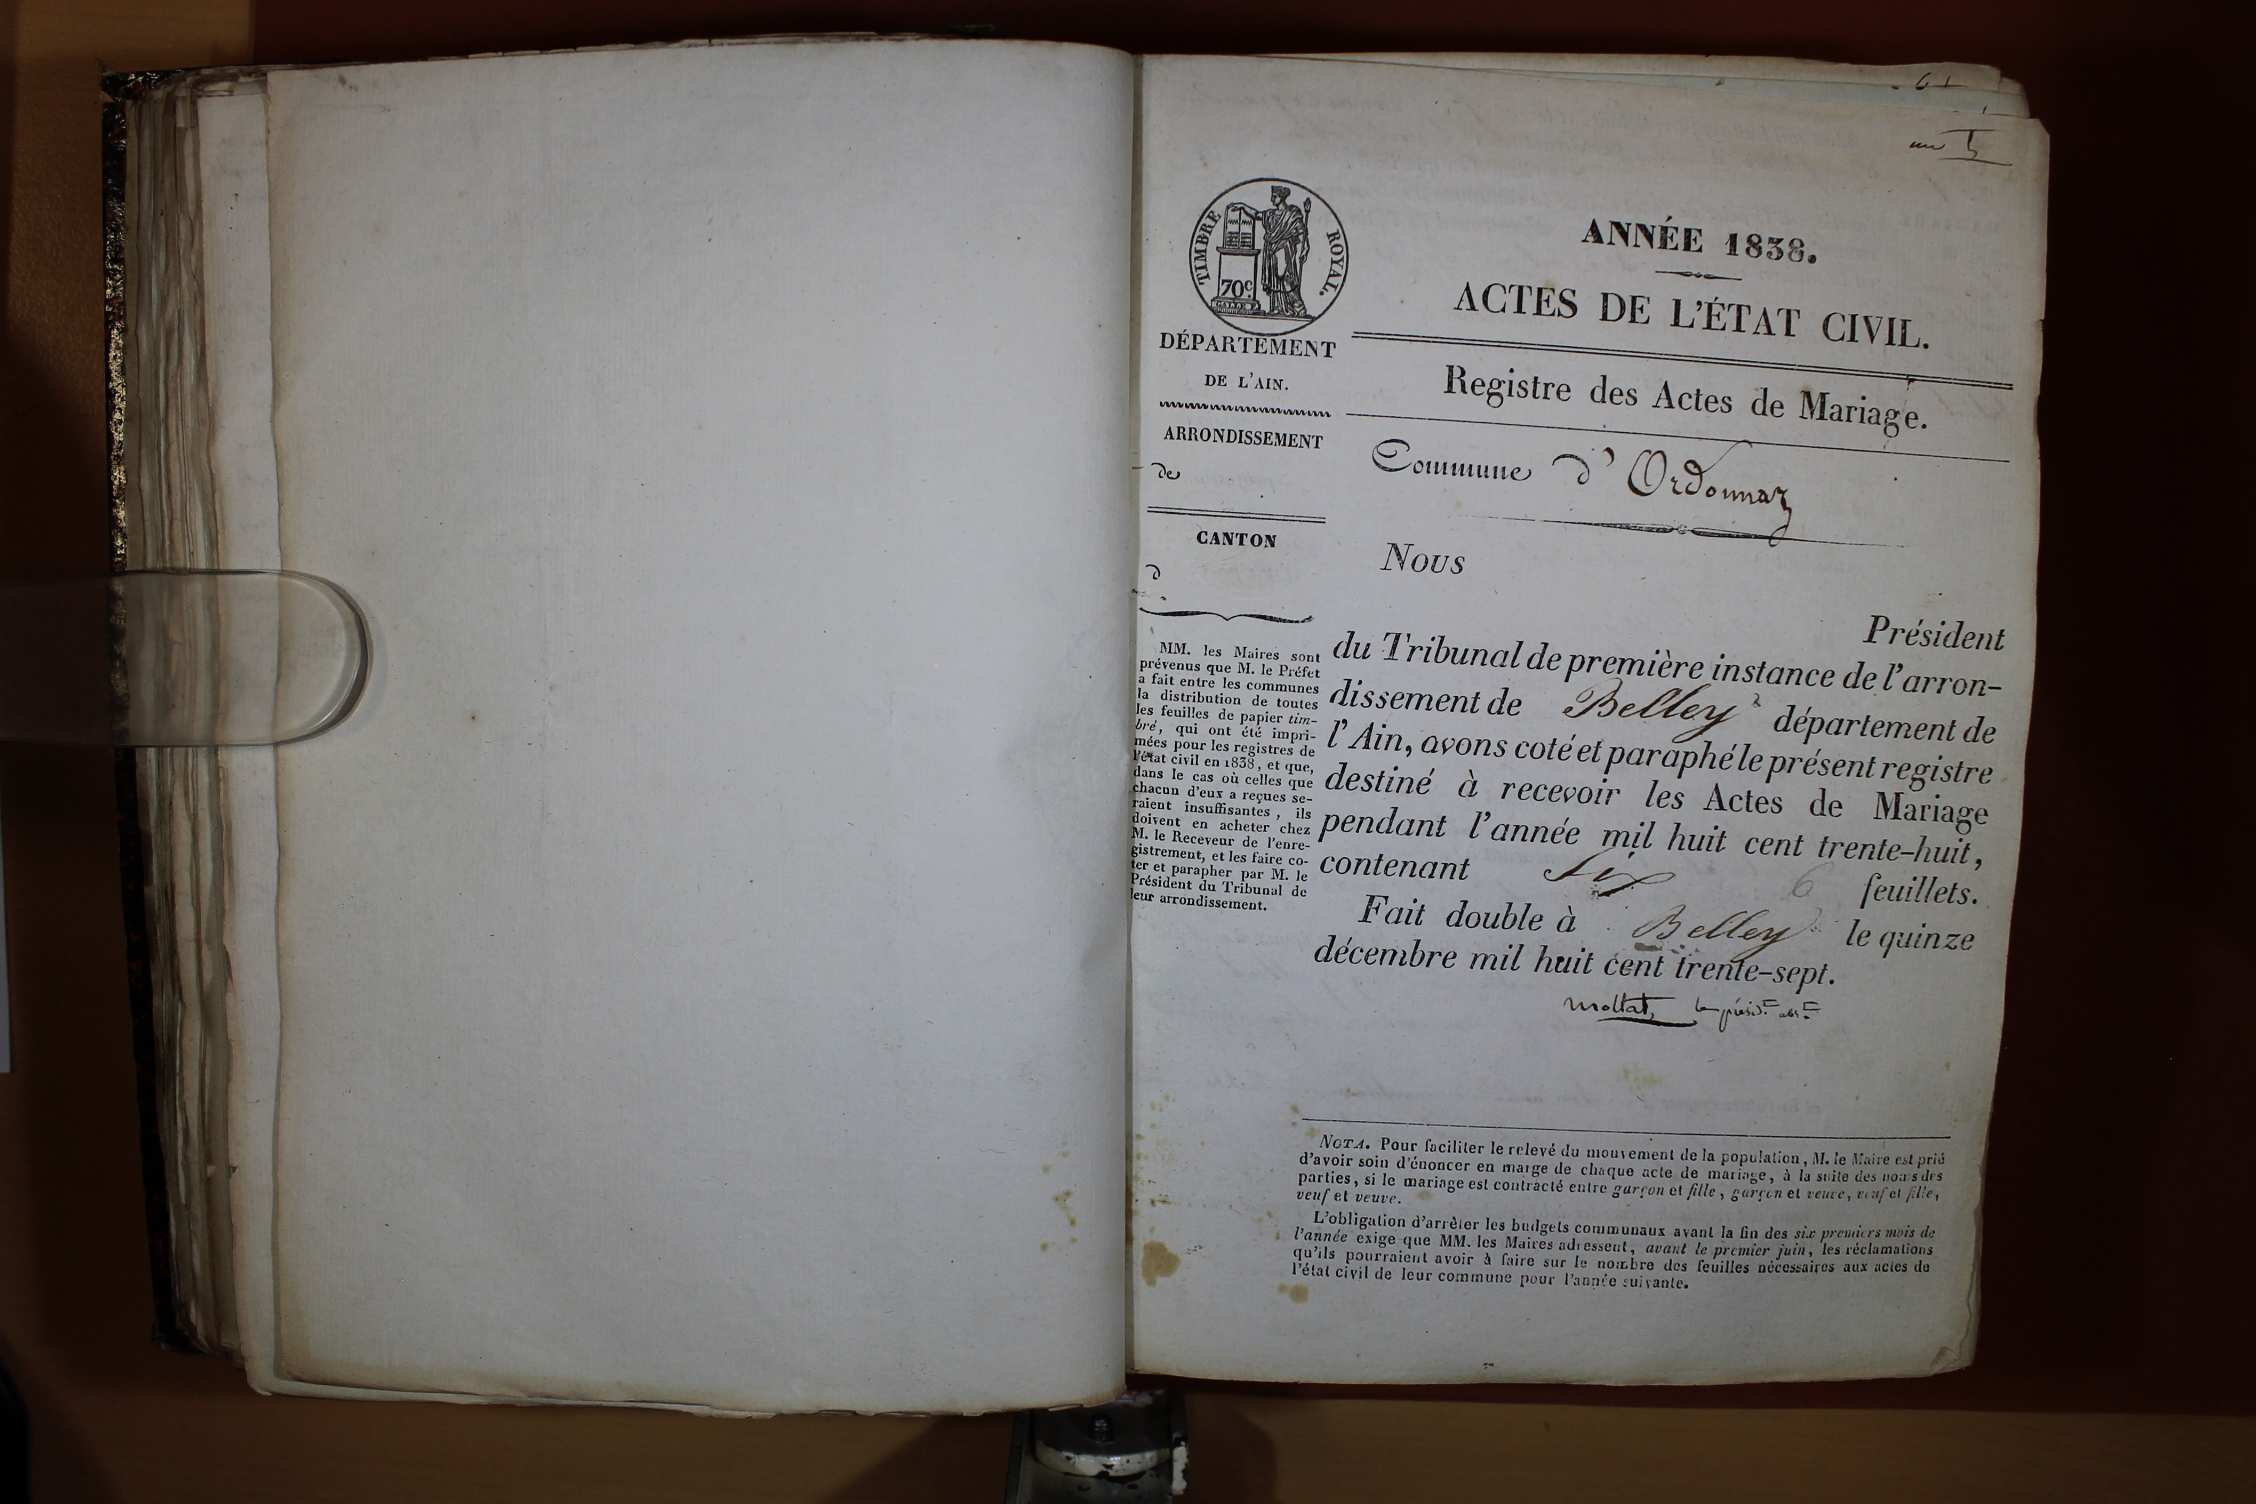 un
TIMBRE ROYAL.
70c
ANNÉE 1838.
ACTES DE L'ÉTAT CIVIL.
DÉPARTEMENT
DE L'AIN.
Registre des Actes de Mariage.
ARRONDISSEMENT
de
Commune d'Ordonnaz
CANTON
d
Nous
Président
du Tribunal de première instance de l'arron-
dissement de Belley département de
l'Ain, avons coté et paraphé le présent registre
destiné à recevoir les Actes de Mariage
pendant l'année mil huit cent trente-huit,
contenant Six 6 feuillets.
Fait double à Belley le quinze
décembre mil huit cent trente-sept.
mollat, le présid.t abs.t
MM. les Maires sont
prévenus que M. le Préfet
a fait entre les communes
la distribution de toutes
les feuilles de papier tim-
bré, qui ont été impri-
mées pour les registres de
l'état civil en 1838, et que,
dans le cas où celles que
chacun d'eux a reçues se-
raient insuffisantes, ils
doivent en acheter chez
M. le Receveur de l'enre-
gistrement, et les faire co-
ter et parapher par M. le
Président du Tribunal de
leur arrondissement.
NOTA. Pour faciliter le relevé du mouvement de la population, M. le Maire est prié
d'avoir soin d'énoncer en marge de chaque acte de mariage, à la suite des noms des
parties, si le mariage est contracté entre garçon et fille, garçon et veuve, veuf et fille,
veuf et veuve.
L'obligation d'arrêter les budgets communaux avant la fin des six premiers mois de
l'année exige que MM. les Maires adressent, avant le premier juin, les réclamations
qu'ils pourraient avoir à faire sur le nombre des feuilles nécessaires aux actes de
l'état civil de leur commune pour l'année suivante.